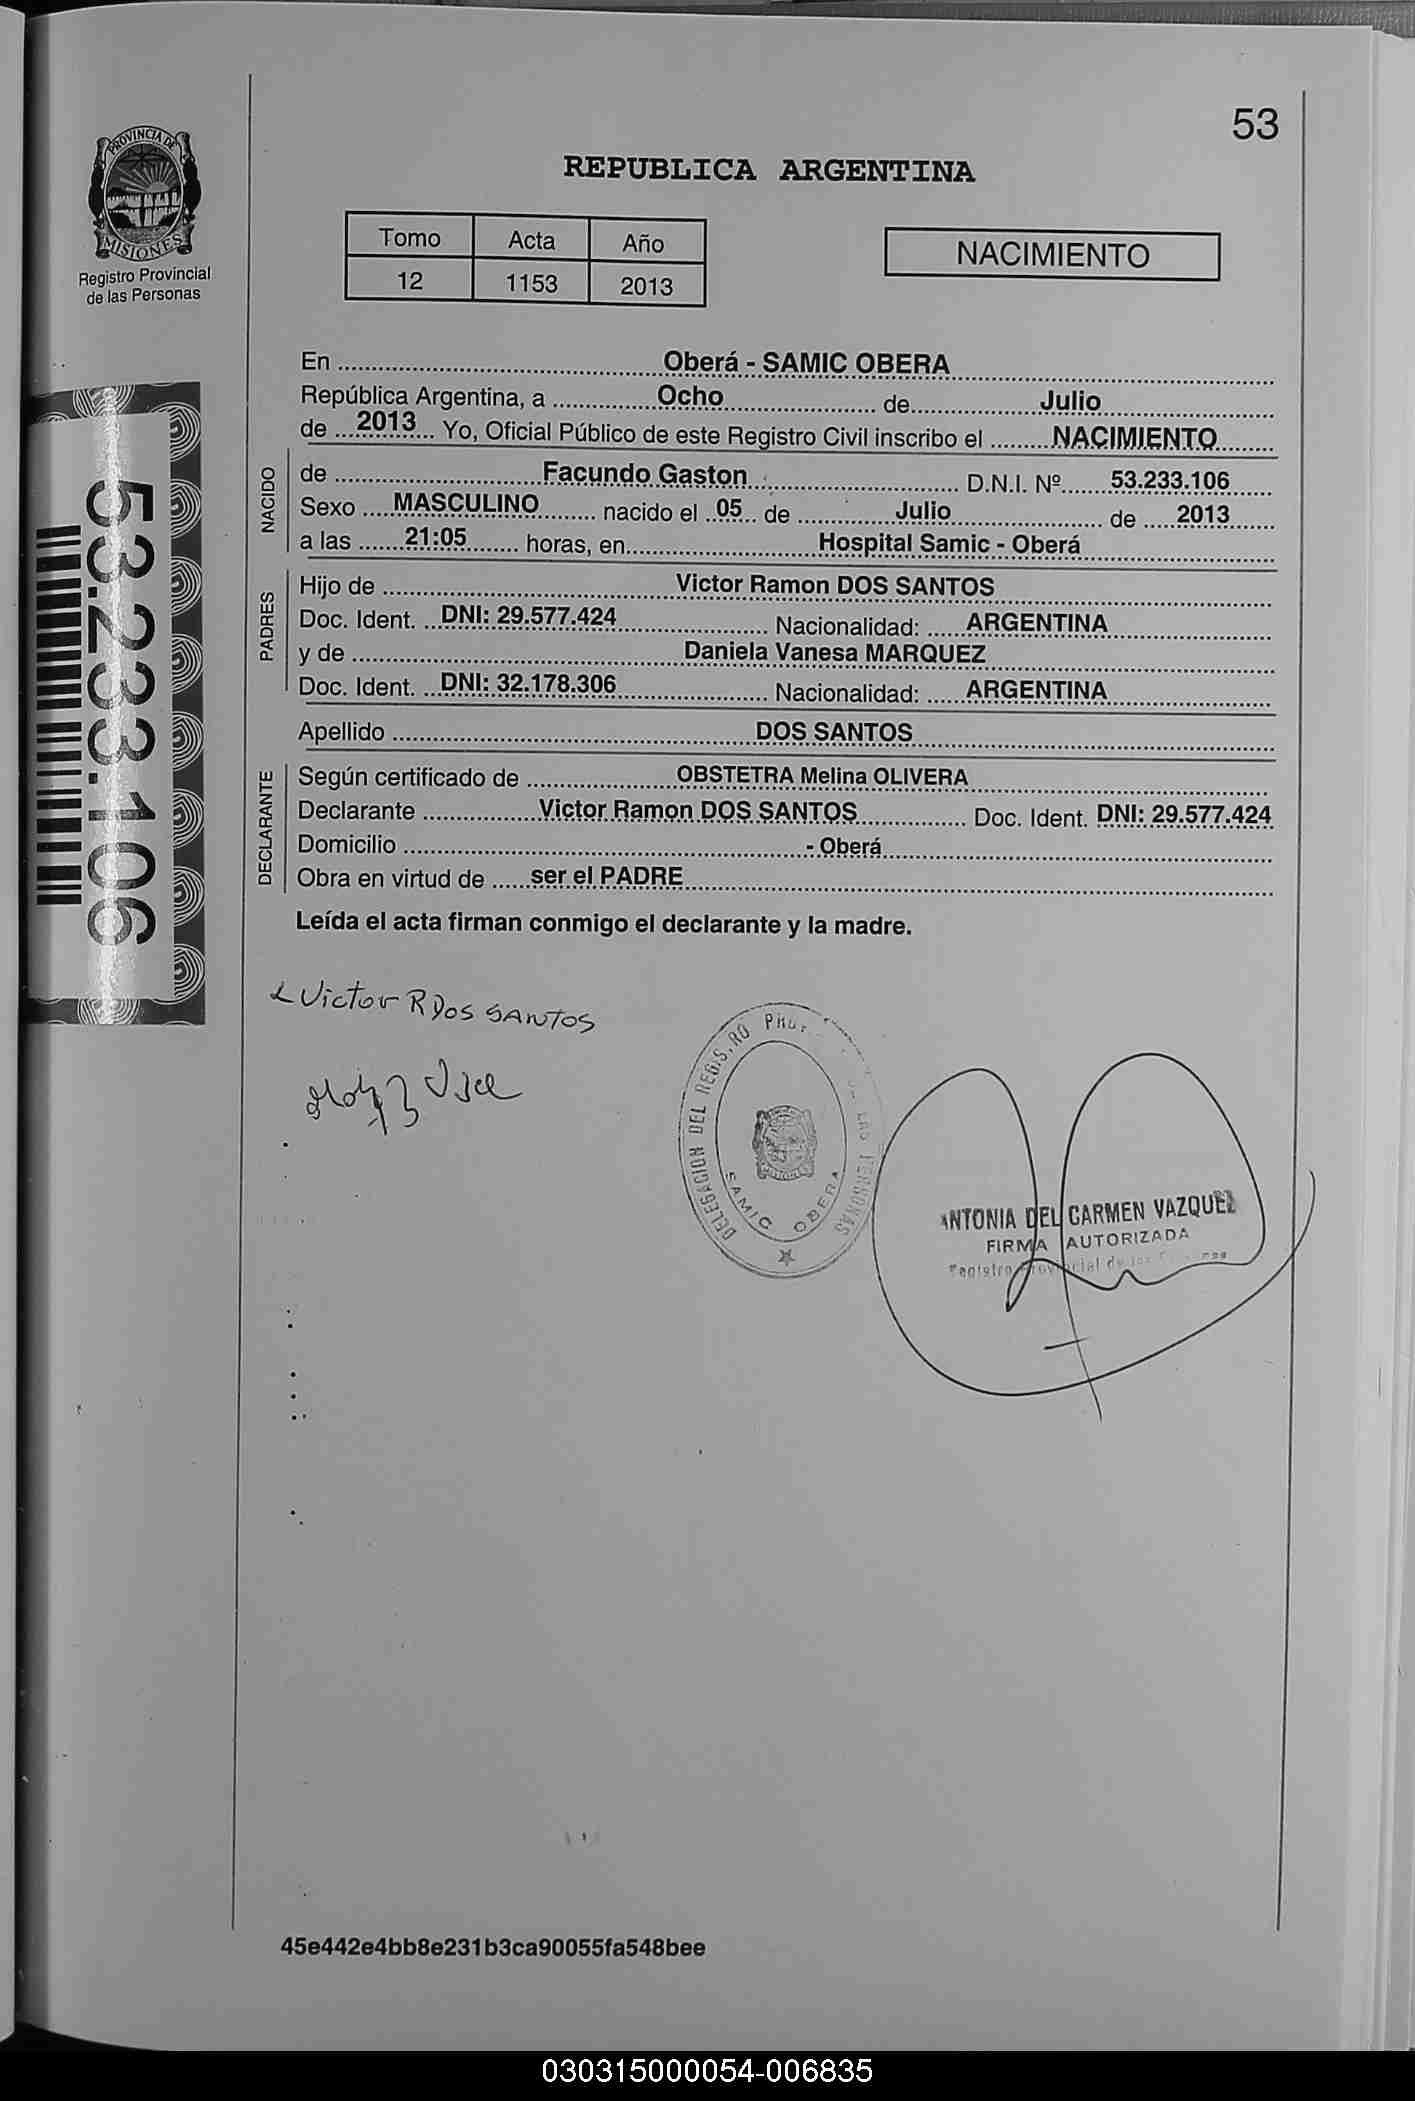 53
PROVINCIA DE
MISIONES
Registro Provincial
de las Personas
REPUBLICA ARGENTINA
Tomo Acta Año
12 1153 2013
NACIMIENTO
53.233.106
En Oberá - SAMIC OBERA
República Argentina, a Ocho de Julio
de 2013 Yo, Oficial Público de este Registro Civil inscribo el NACIMIENTO
NACIDO
de Facundo Gaston D.N.I. Nº 53.233.106
Sexo MASCULINO nacido el 05 de Julio de 2013
a las 21:05 horas, en Hospital Samic - Oberá
PADRES
Hijo de Victor Ramon DOS SANTOS
Doc. Ident. DNI: 29.577.424 Nacionalidad: ARGENTINA
y de Daniela Vanesa MARQUEZ
Doc. Ident. DNI: 32.178.306 Nacionalidad: ARGENTINA
Apellido DOS SANTOS
DECLARANTE
Según certificado de OBSTETRA Melina OLIVERA
Declarante Victor Ramon DOS SANTOS Doc. Ident. DNI: 29.577.424
Domicilio - Oberá
Obra en virtud de ser el PADRE
Leída el acta firman conmigo el declarante y la madre.
Victor R Dos SANTOS
DELEGACION DEL REGIS.RO LAS PERSONAS
SAMIC OBERA
ANTONIA DEL CARMEN VAZQUEZ
FIRMA AUTORIZADA
Registro Provincial de las
45e442e4bb8e231b3ca90055fa548bee
030315000054-006835